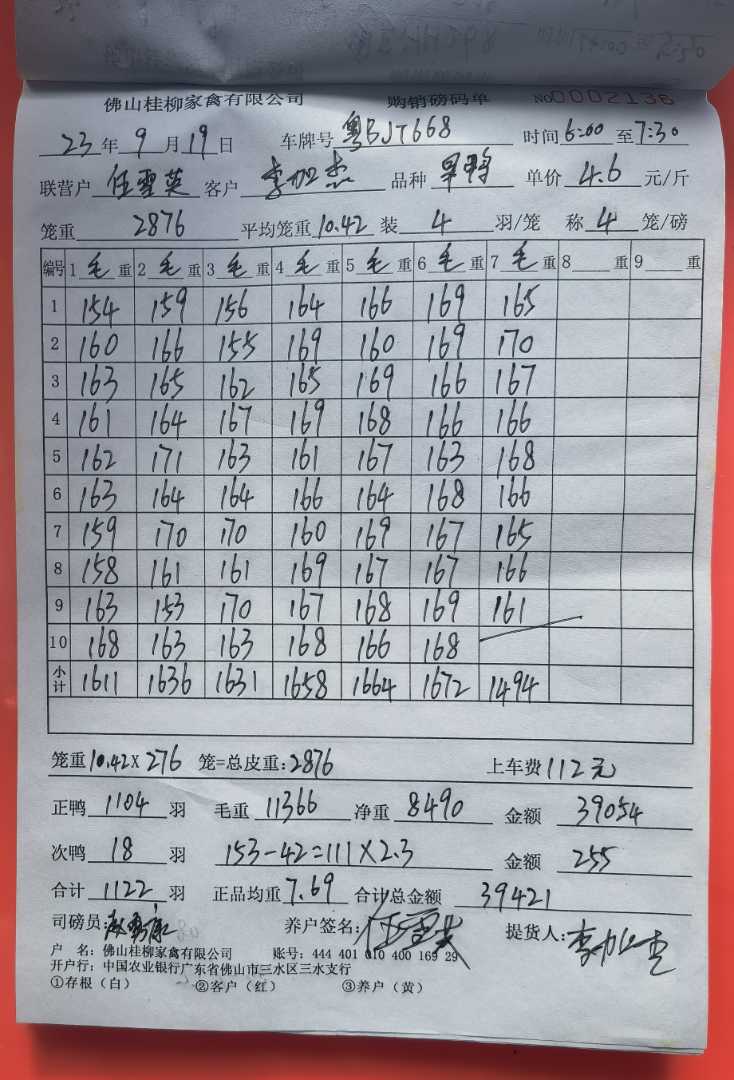 佛山桂柳家禽有限公司 购销磅码单 NO0002136
23年9月19日 车牌号粤BJT668 时间6:00至7:30
联营户任雪英 客户李加杰 品种 单价4.6元/斤
笼重2876 平均笼重10.42 装4羽/笼 称4笼/磅
编号 1毛重 2毛重 3毛重 4毛重 5毛重 6毛重 7毛重 8 重 9 重
1 154 159 156 164 166 169 165
2 160 166 155 169 160 169 170
3 163 165 162 165 169 166 167
4 161 164 167 169 168 166 166
5 162 171 163 161 167 163 168
6 163 164 164 166 164 168 166
7 159 170 170 160 169 167 165
8 158 161 161 169 167 167 166
9 163 153 170 167 168 169 161
10 168 163 163 168 166 168
小计 1611 1636 1631 1658 1664 1672 1494
笼重10.42×276笼=总皮重:2876 上车费112元
正鸭1104羽 毛重11366 净重8490 金额39054
次鸭18羽 153-42=111×2.3 金额255
合计1122羽 正品均重7.69 合计总金额39421
司磅员: 养户签名:任雪英 提货人:李加杰
户 名:佛山桂柳家禽有限公司 账号:444 401 010 400 169 29
开户行:中国农业银行广东省佛山市三水区三水支行
①存根(白) ②客户(红) ③养户(黄)